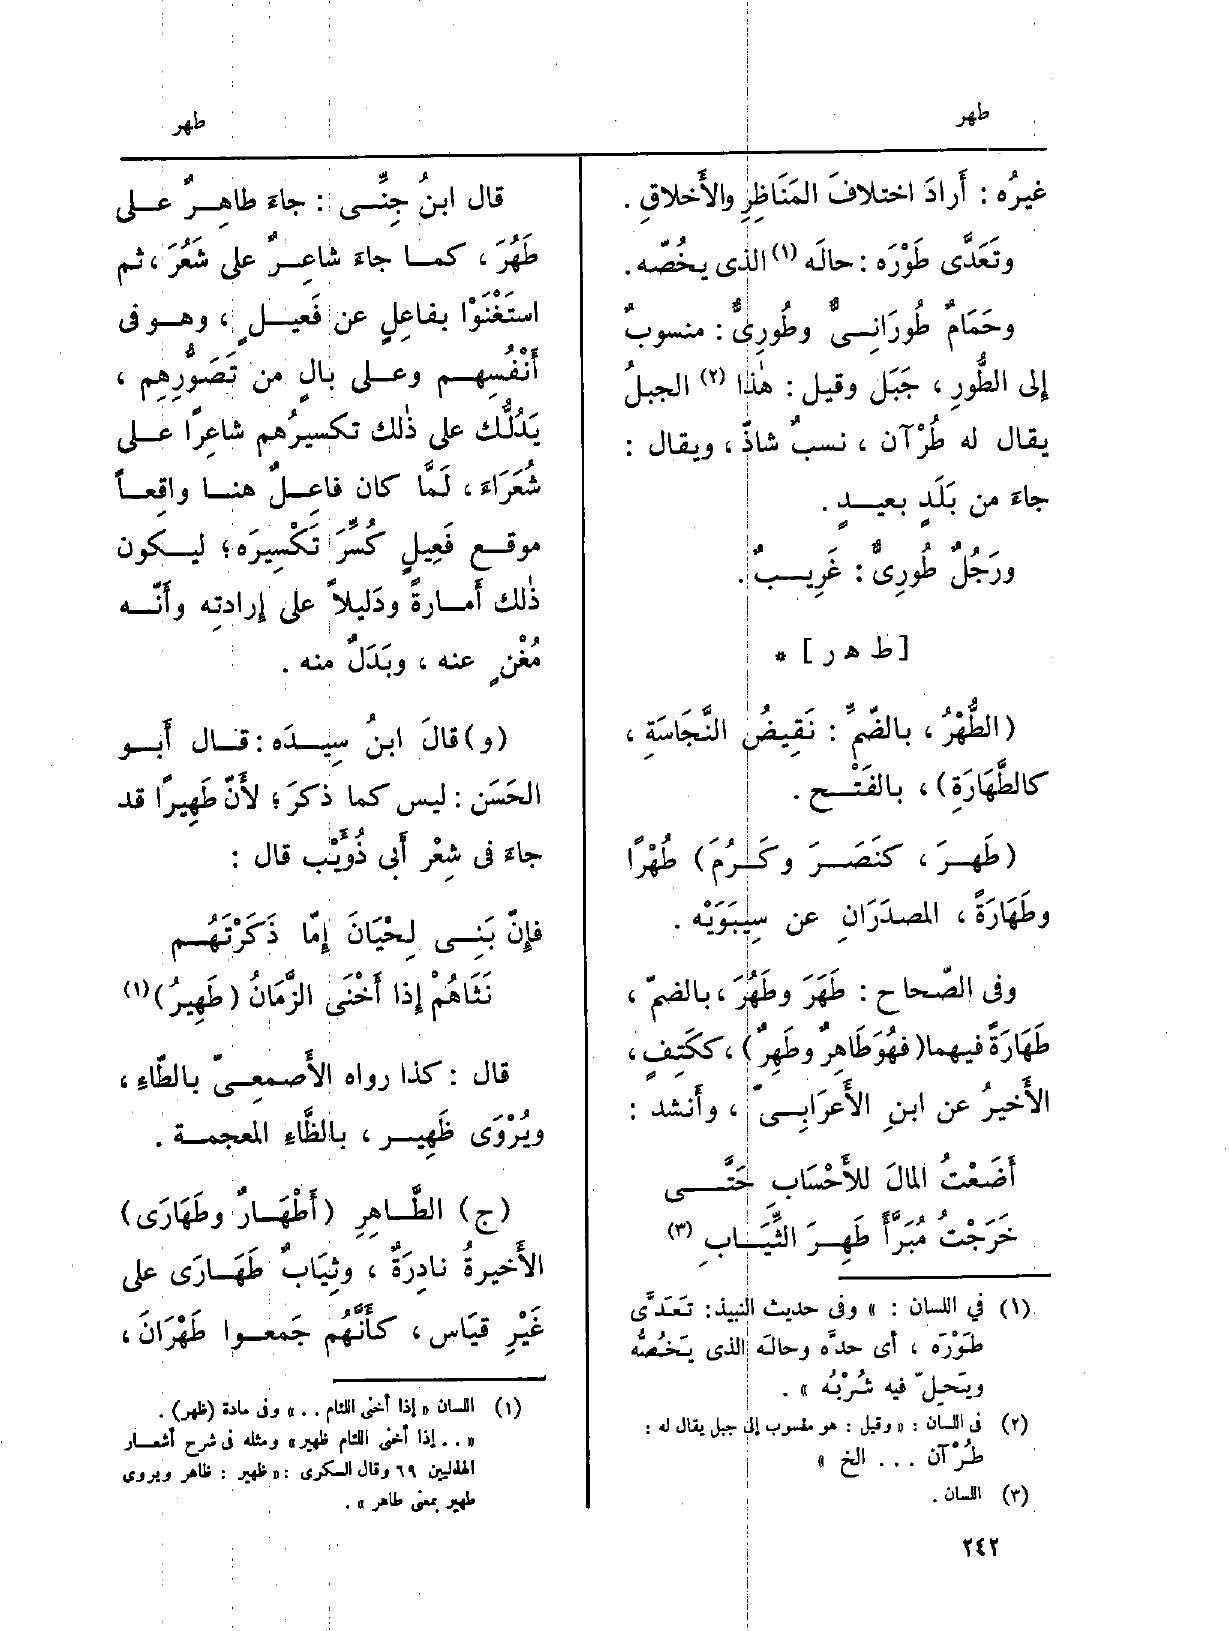 طهر
طهر
غيرُه : أَرادَ اختلافَ المَنَاظِرِ والأَخلاقِ .
وتَعَدَّى طَوْرَه : حالَه (١) الذى يخُصّه .
وحَمَامٌ طُورَانِىٌّ وطُورِىٌّ : منسوبٌ
إلى الطُّورِ ، جَبَل وقيل : هٰذا (٢) الجبلُ
يقال له طُرْآن ، نسبٌ شاذّ ، ويقال :
جاءَ من بَلَدٍ بعيدٍ .
ورَجُلٌ طُورِىٌّ : غَرِيبٌ .
[ ط هـ ر ] *
(الطُّهْرُ ، بالضّمِّ : نَقِيضُ النَّجَاسَةِ ،
كالطَّهَارَةِ) ، بالفَتْح .
(طَهرَ ، كنَصَرَ وكَرُمَ) طُهْرًا
وطَهَارَةً ، المصدَرَانِ عن سِيبَوَيْه .
وفى الصّحاح : طَهَرَ وطَهُرَ ، بالضمّ ،
طَهَارَةً فيهما (فهُوَ طَاهِرٌ وطَهِرٌ) ، ككَتِفٍ ،
الأَخيرُ عن ابنِ الأَعرَابِىّ ، وأَنشد :
أَضَعْتُ المَالَ للأَحْسَابِ حَتَّى
خَرَجْتُ مُبَرَّأً طَهِرَ الثِّيَابِ (٣)
(١) في اللسان : « وفى حديث النبيذ : تَعَدَّى
طَوْرَه ، أى حدَّه وحالَه الذى يَخُصُّه
ويَحِلّ فيه شُرْبُه » .
(٢) فى اللسان : « وقيل : هو منسوب إلى جبل يقال له :
طُرْآن . . . الخ »
(٣) اللسان .
قال ابنُ جِنِّى : جاءَ طاهِرٌ على
طَهُرَ ، كما جاءَ شاعِرٌ على شَعُرَ ، ثم
استَغْنَوْا بفاعِلٍ عن فَعِيلٍ ، وهو فى
أَنْفُسِهم وعلى بالٍ من تَصَوُّرِهِم ،
يَدُلُّك على ذٰلك تكسيرُهم شاعِرًا على
شُعَرَاءَ ، لَمَّا كان فاعِلٌ هنا واقِعاً
موقع فَعِيلٍ كُسِّرَ تَكْسِيرَه ؛ ليكون
ذٰلك أَمارةً ودَليلاً على إِرادتِه وأَنّه
مُغْنٍ عنه ، وبَدَلٌ منه .
(و) قالَ ابنُ سِيدَه : قال أَبو
الحَسَن : ليس كما ذكرَ ؛ لأَنّ طَهِيرًا قد
جاءَ فى شِعْر أَبى ذُؤَيْب قال :
فإِنّ بَنِى لِحْيَانَ إِمّا ذَكَرْتَهُم
نَثَاهُمْ إِذا أَخْنَى الزَّمَانُ (طَهِيرُ) (١)
قال : كذا رواه الأَصمعِىّ بالطّاءِ ،
ويُرْوَى ظَهِير ، بالظَّاءِ المعجمة .
(ج) الطَّاهِرِ (أَطْهَارٌ وطَهَارَى)
الأَخيرةُ نادِرَةٌ ، وثِيَابٌ طَهَارَى على
غَيْرِ قيَاس ، كأَنَّهُم جَمعوا طَهْرَانَ ،
(١) اللسان « إذا أخنى اللئام . . » وفى مادة (ظهر) .
« . . إذا أخنى اللئام ظهير » ومثله فى شرح أشعار
الهذليين ٦٩ وقال السكرى : « ظهير : ظاهر ويروى
طهير بمعنى طاهر » .
٢٤٢